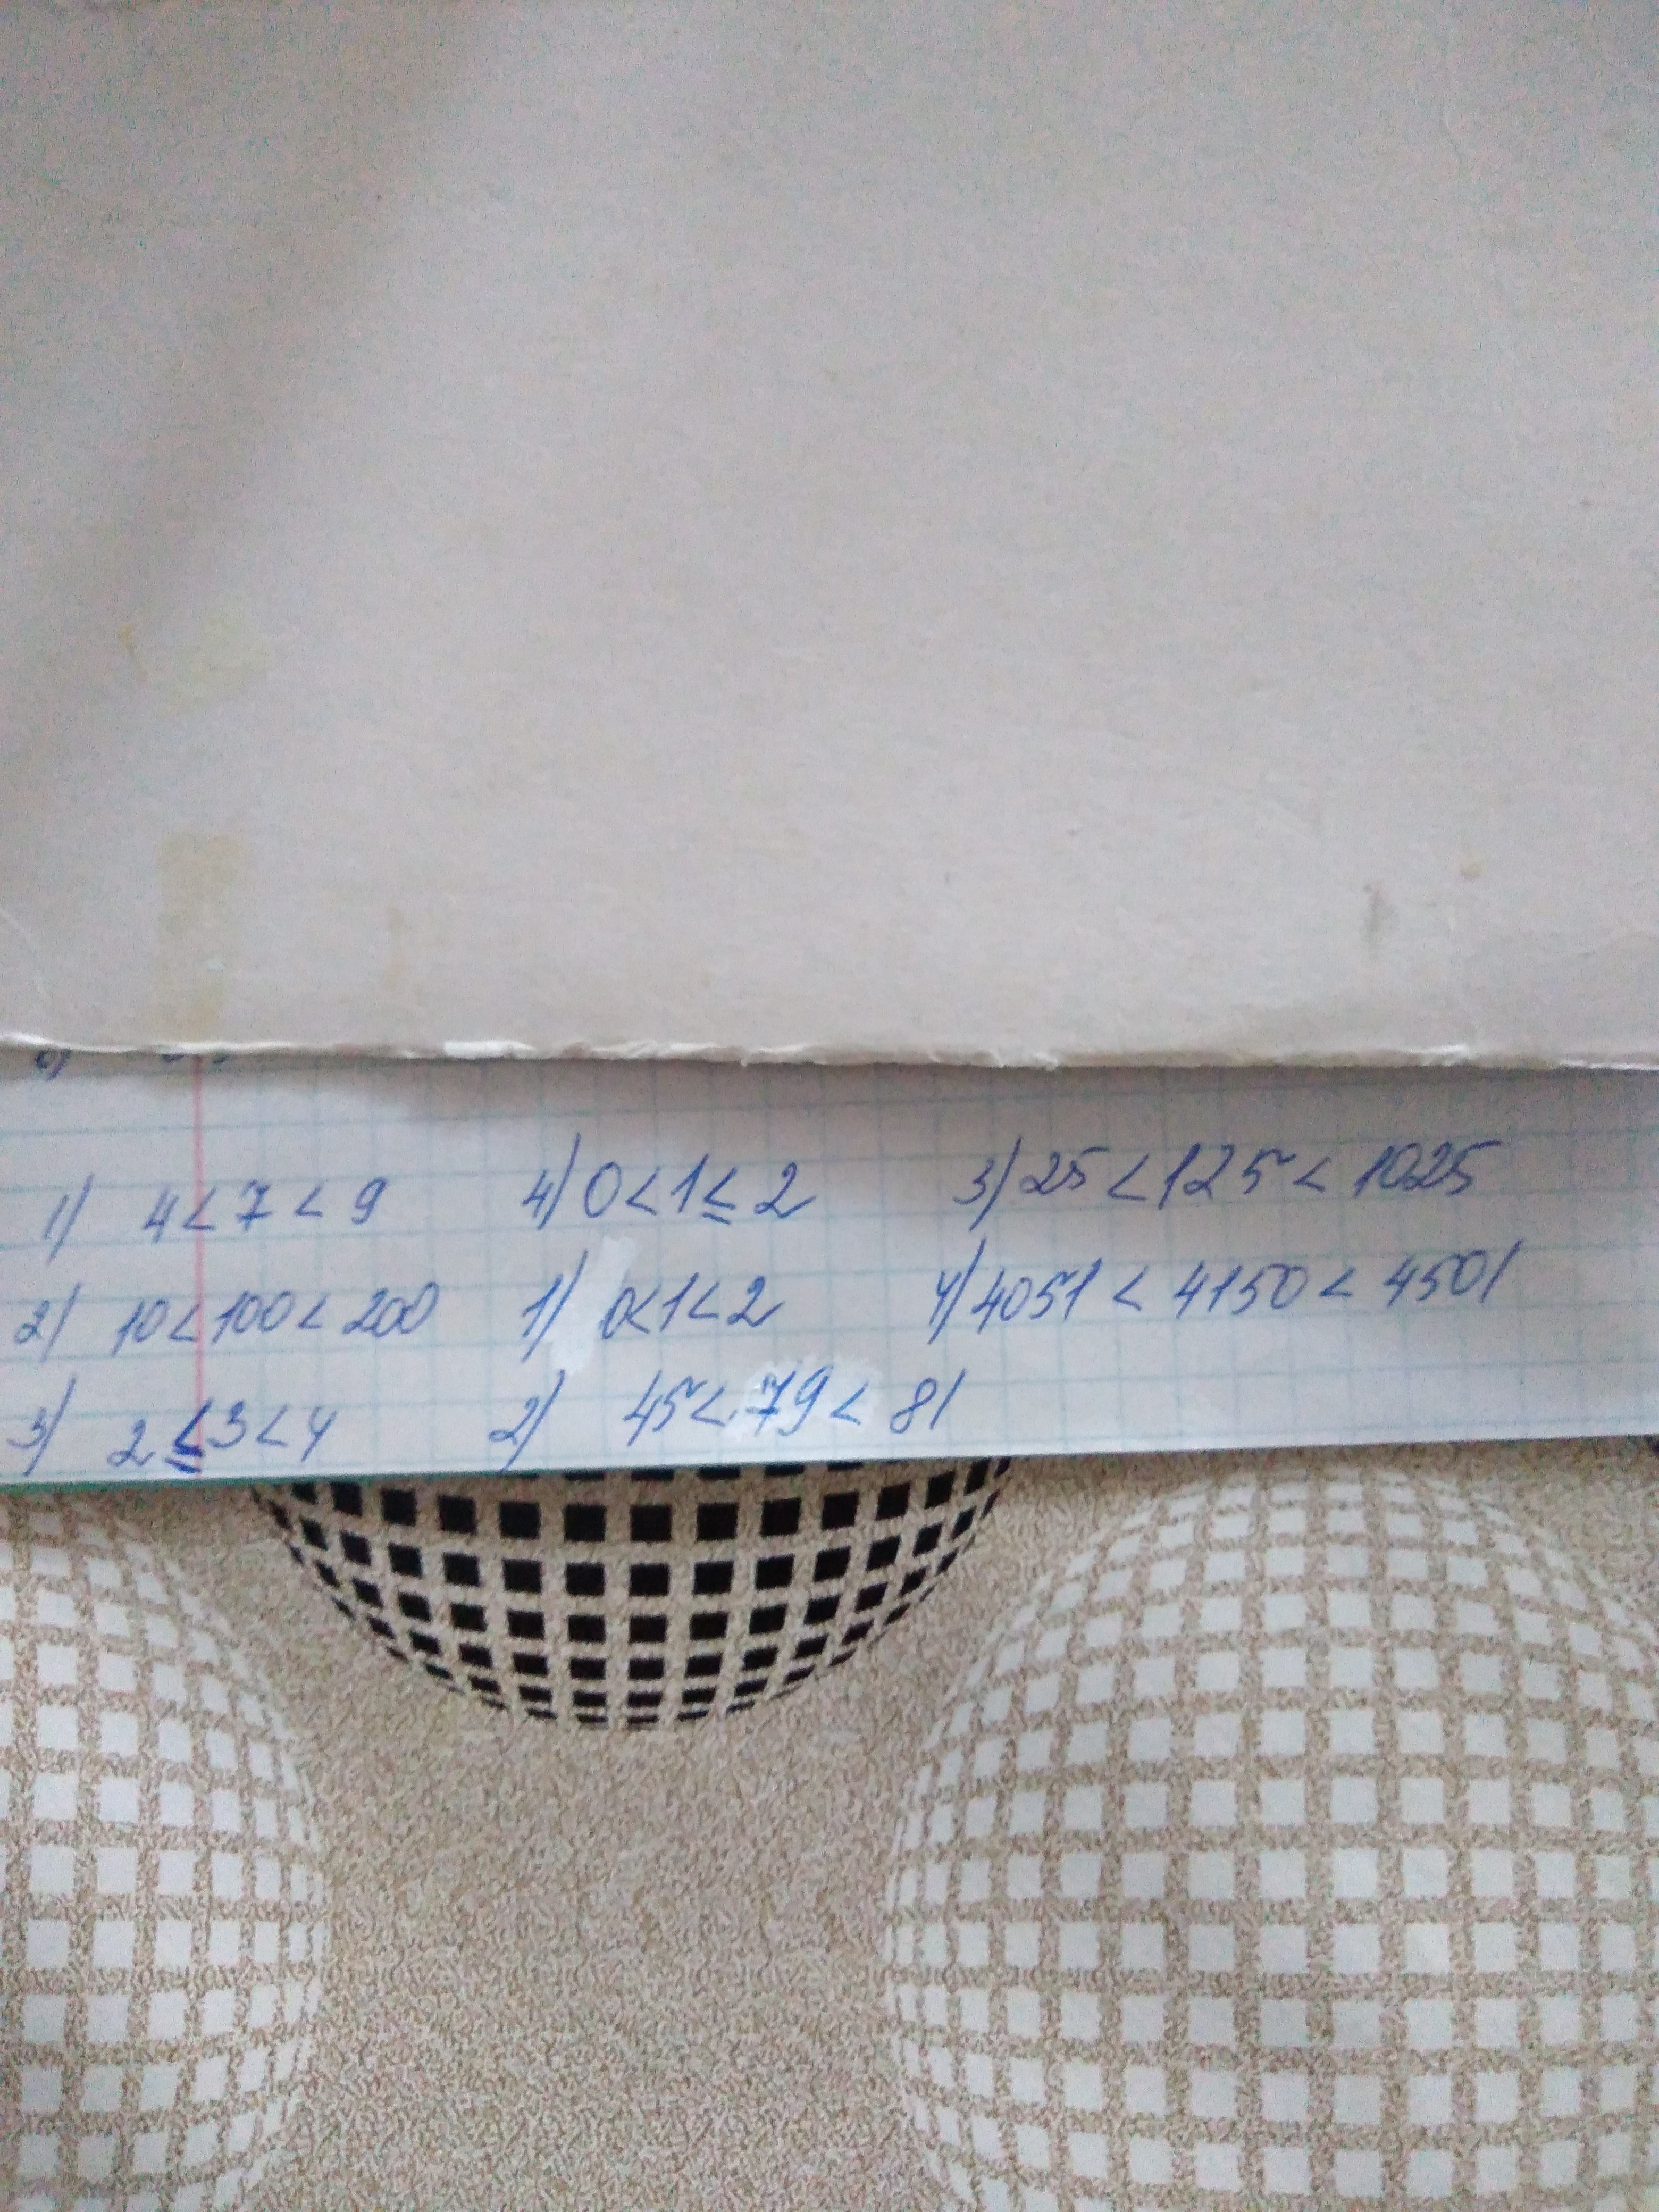 1) 4 < 7 < 9
2) 10 < 100 < 200
3) 2 ≤ 3 < 4
4) 0 < 1 ≤ 2
1) 0 < 1 < 2
2) 45 < 79 < 81
3) 25 < 125 < 1025
4) 4051 < 4150 < 4501